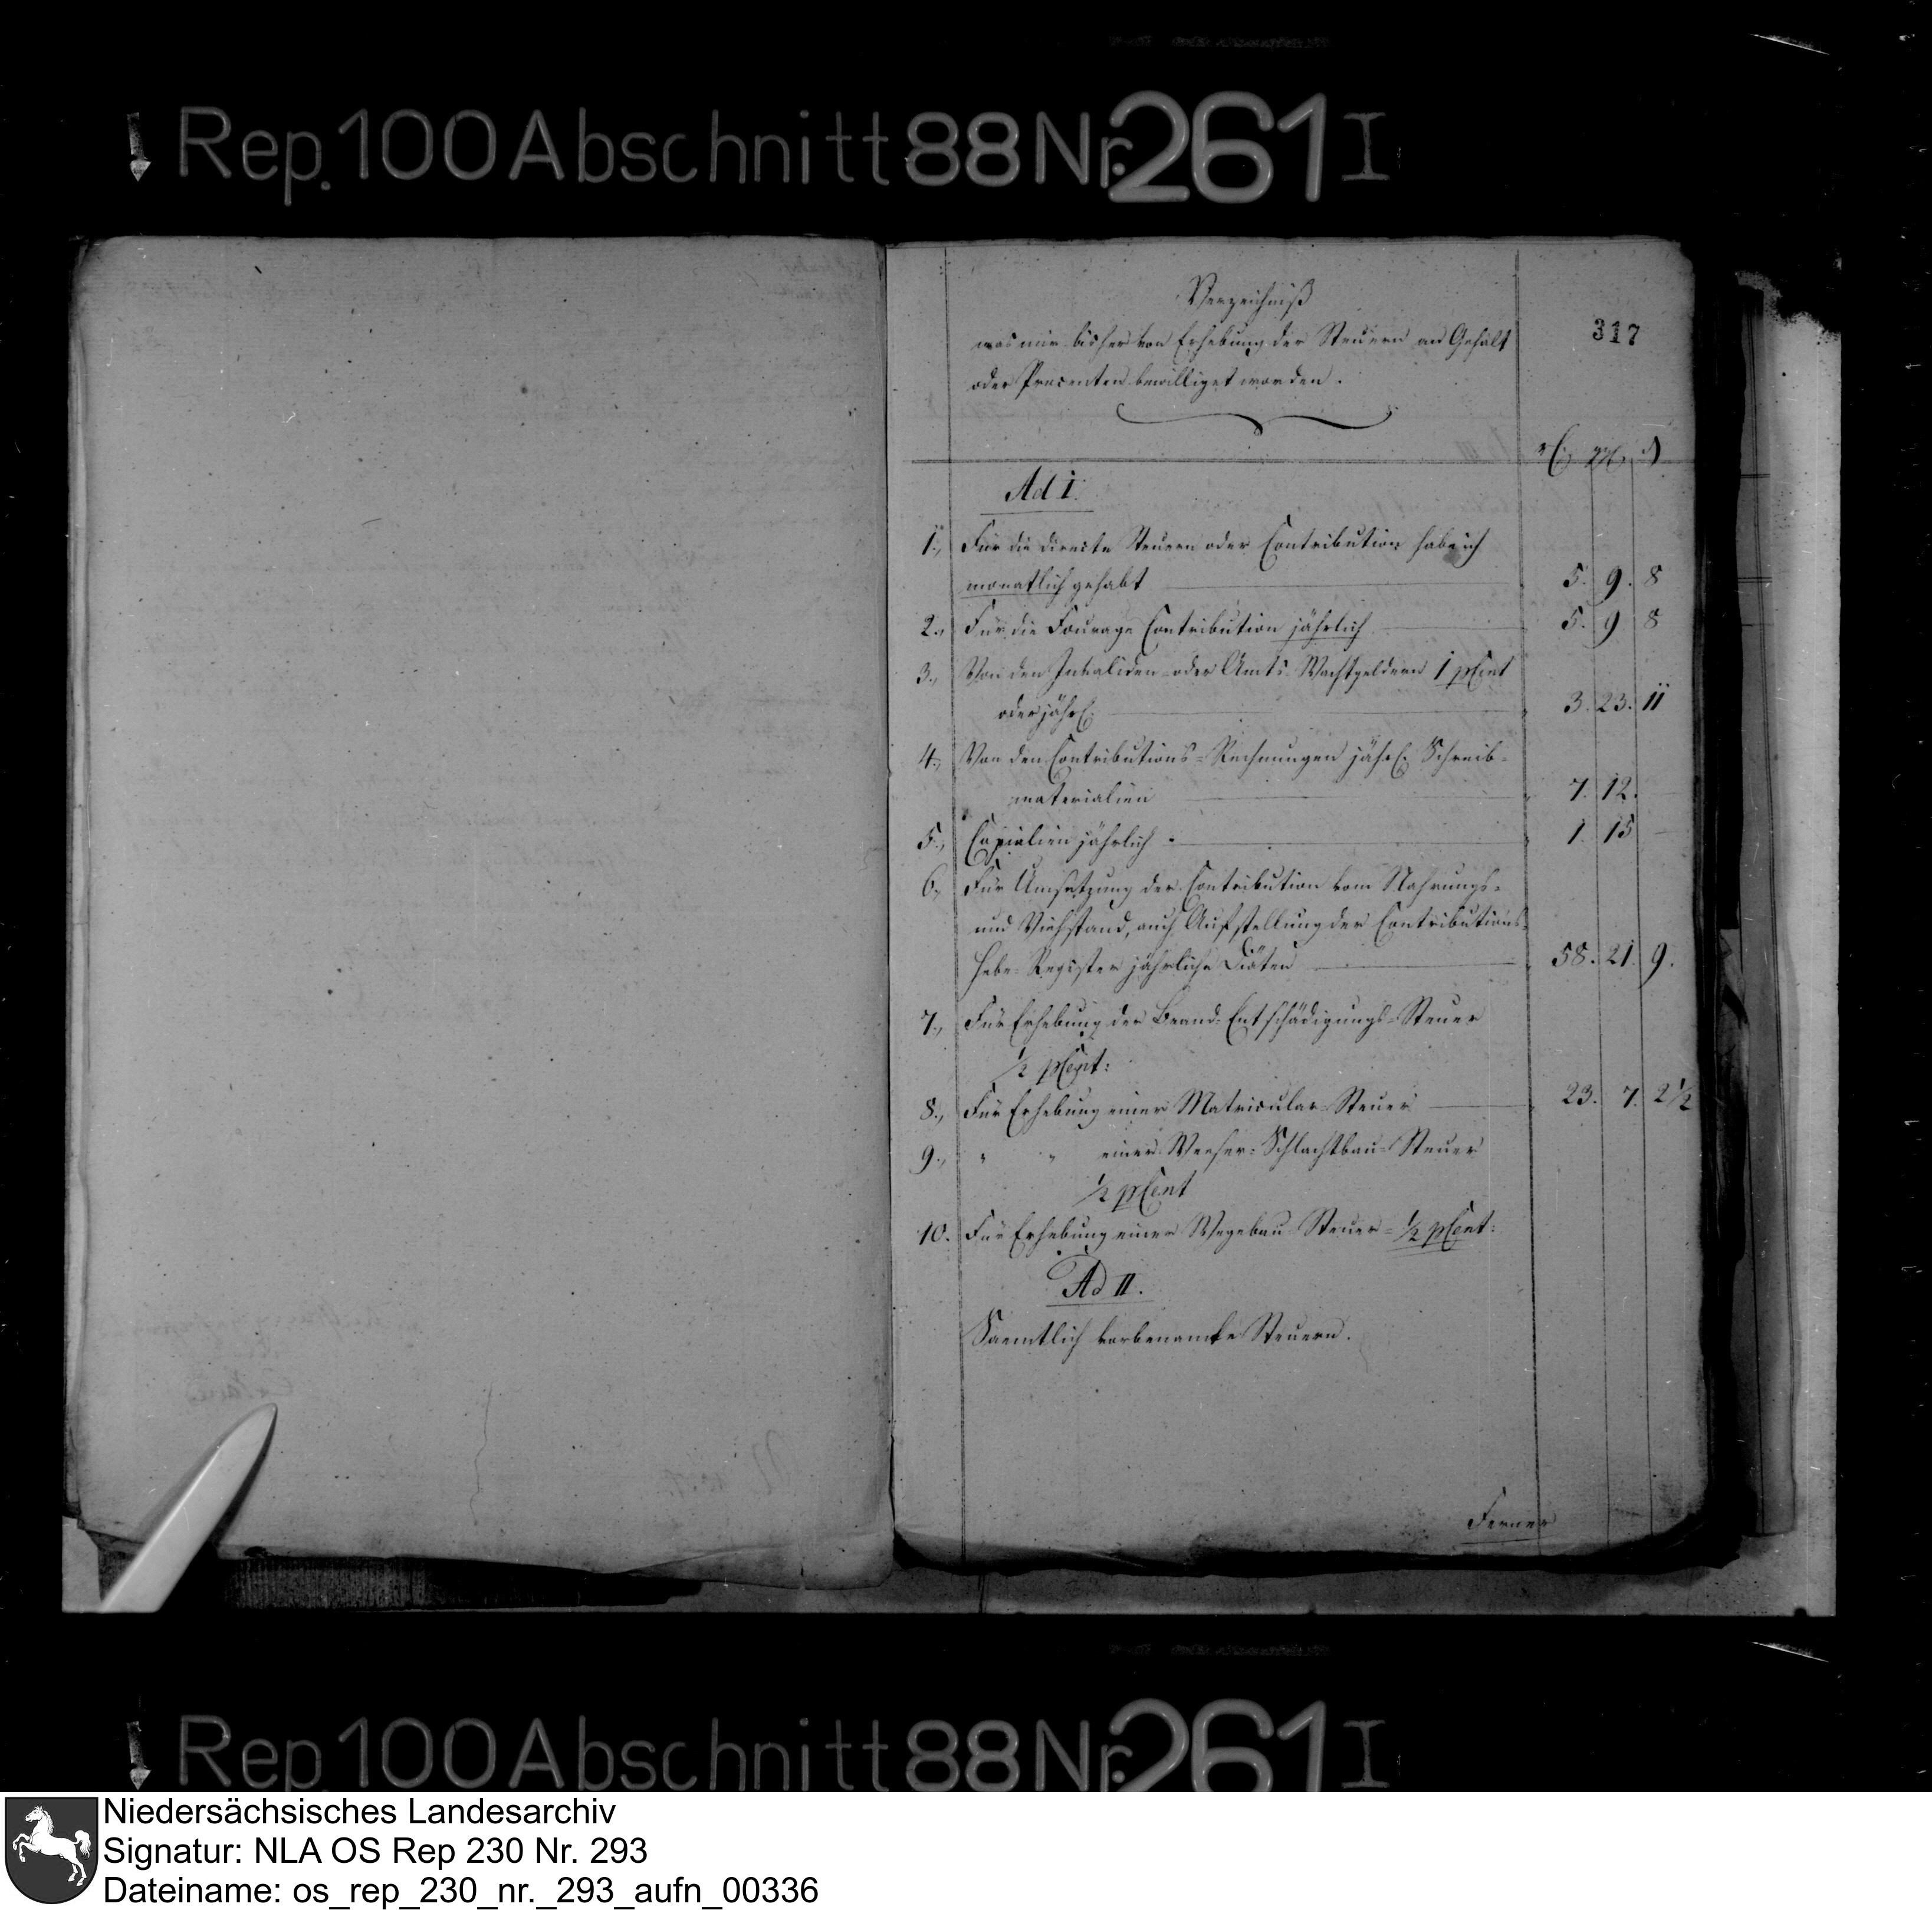 Rep. 100 Abschnitt 88 Nr. 261 I
317
Verzeichniß
was mir bisher von Erhebung der Steuern an Gehalt
oder Procenten bewilliget worden.
Ad I.
1., Für die directe Steuern oder Contribution habe ich
monatlich gehabt 5. 9. 8
2., Für die Fourage Contribution jährlich 5. 9 8
3., Von den Invaliden- oder Amts-Wachtgeldern 1 pCent
oder jährl. 3. 23. 11
4., Von den Contributions-Rechnungen jährl. Schreib-
materialien 7. 12.
5., Copialien jährlich 1. 15
6., Für Umsetzung der Contribution vom Nahrungs-
und Viehstand, auch Aufstellung der Contributions-
Hebe-Register jährliche Diäten 58. 21. 9.
7., Für Erhebung der Brand-Entschädigungs-Steuer
1/2 pCent:
8., Für Erhebung einer Matricular-Steuer 23. 7. 2 1/2
9., " " einer Weser-Schlachtbau-Steuer
1/2 pCent
10. Für Erhebung einer Wegebau-Steuer = 1/2 pCent:
Ad II.
Saemtlich vorbenamte Steuern.
Ferner
Rep. 100 Abschnitt 88 Nr. 261 I
Niedersächsisches Landesarchiv
Signatur: NLA OS Rep 230 Nr. 293
Dateiname: os_rep_230_nr._293_aufn_00336